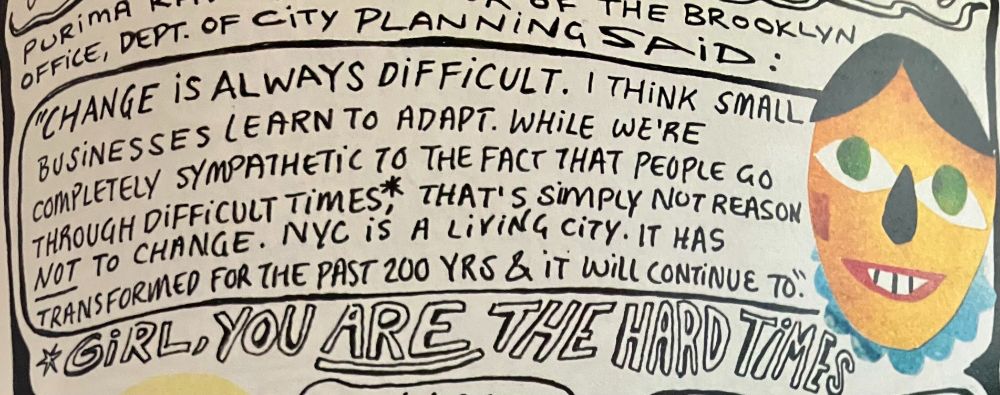 PURIMA
OF THE BROOKLYN
OFFICE, DEPT. OF CITY PLANNING SAID:
"CHANGE iS ALWAYS DiFFiCULT. I THiNK SMALL
BUSiNESSES LEARN TO ADAPT. WHiLE WE'RE
COMPLETELY SYMPATHETiC TO THE FACT THAT PEOPLE GO
THROUGH DiFFiCULT TiMES,* THAT'S SiMPLY NOT REASON
NOT TO CHANGE. NYC iS A LiViNG CiTY. IT HAS
TRANSFORMED FOR THE PAST 200 YRS & iT WiLL CONTiNUE TO."
*GiRL, YOU ARE THE HARD TiMES